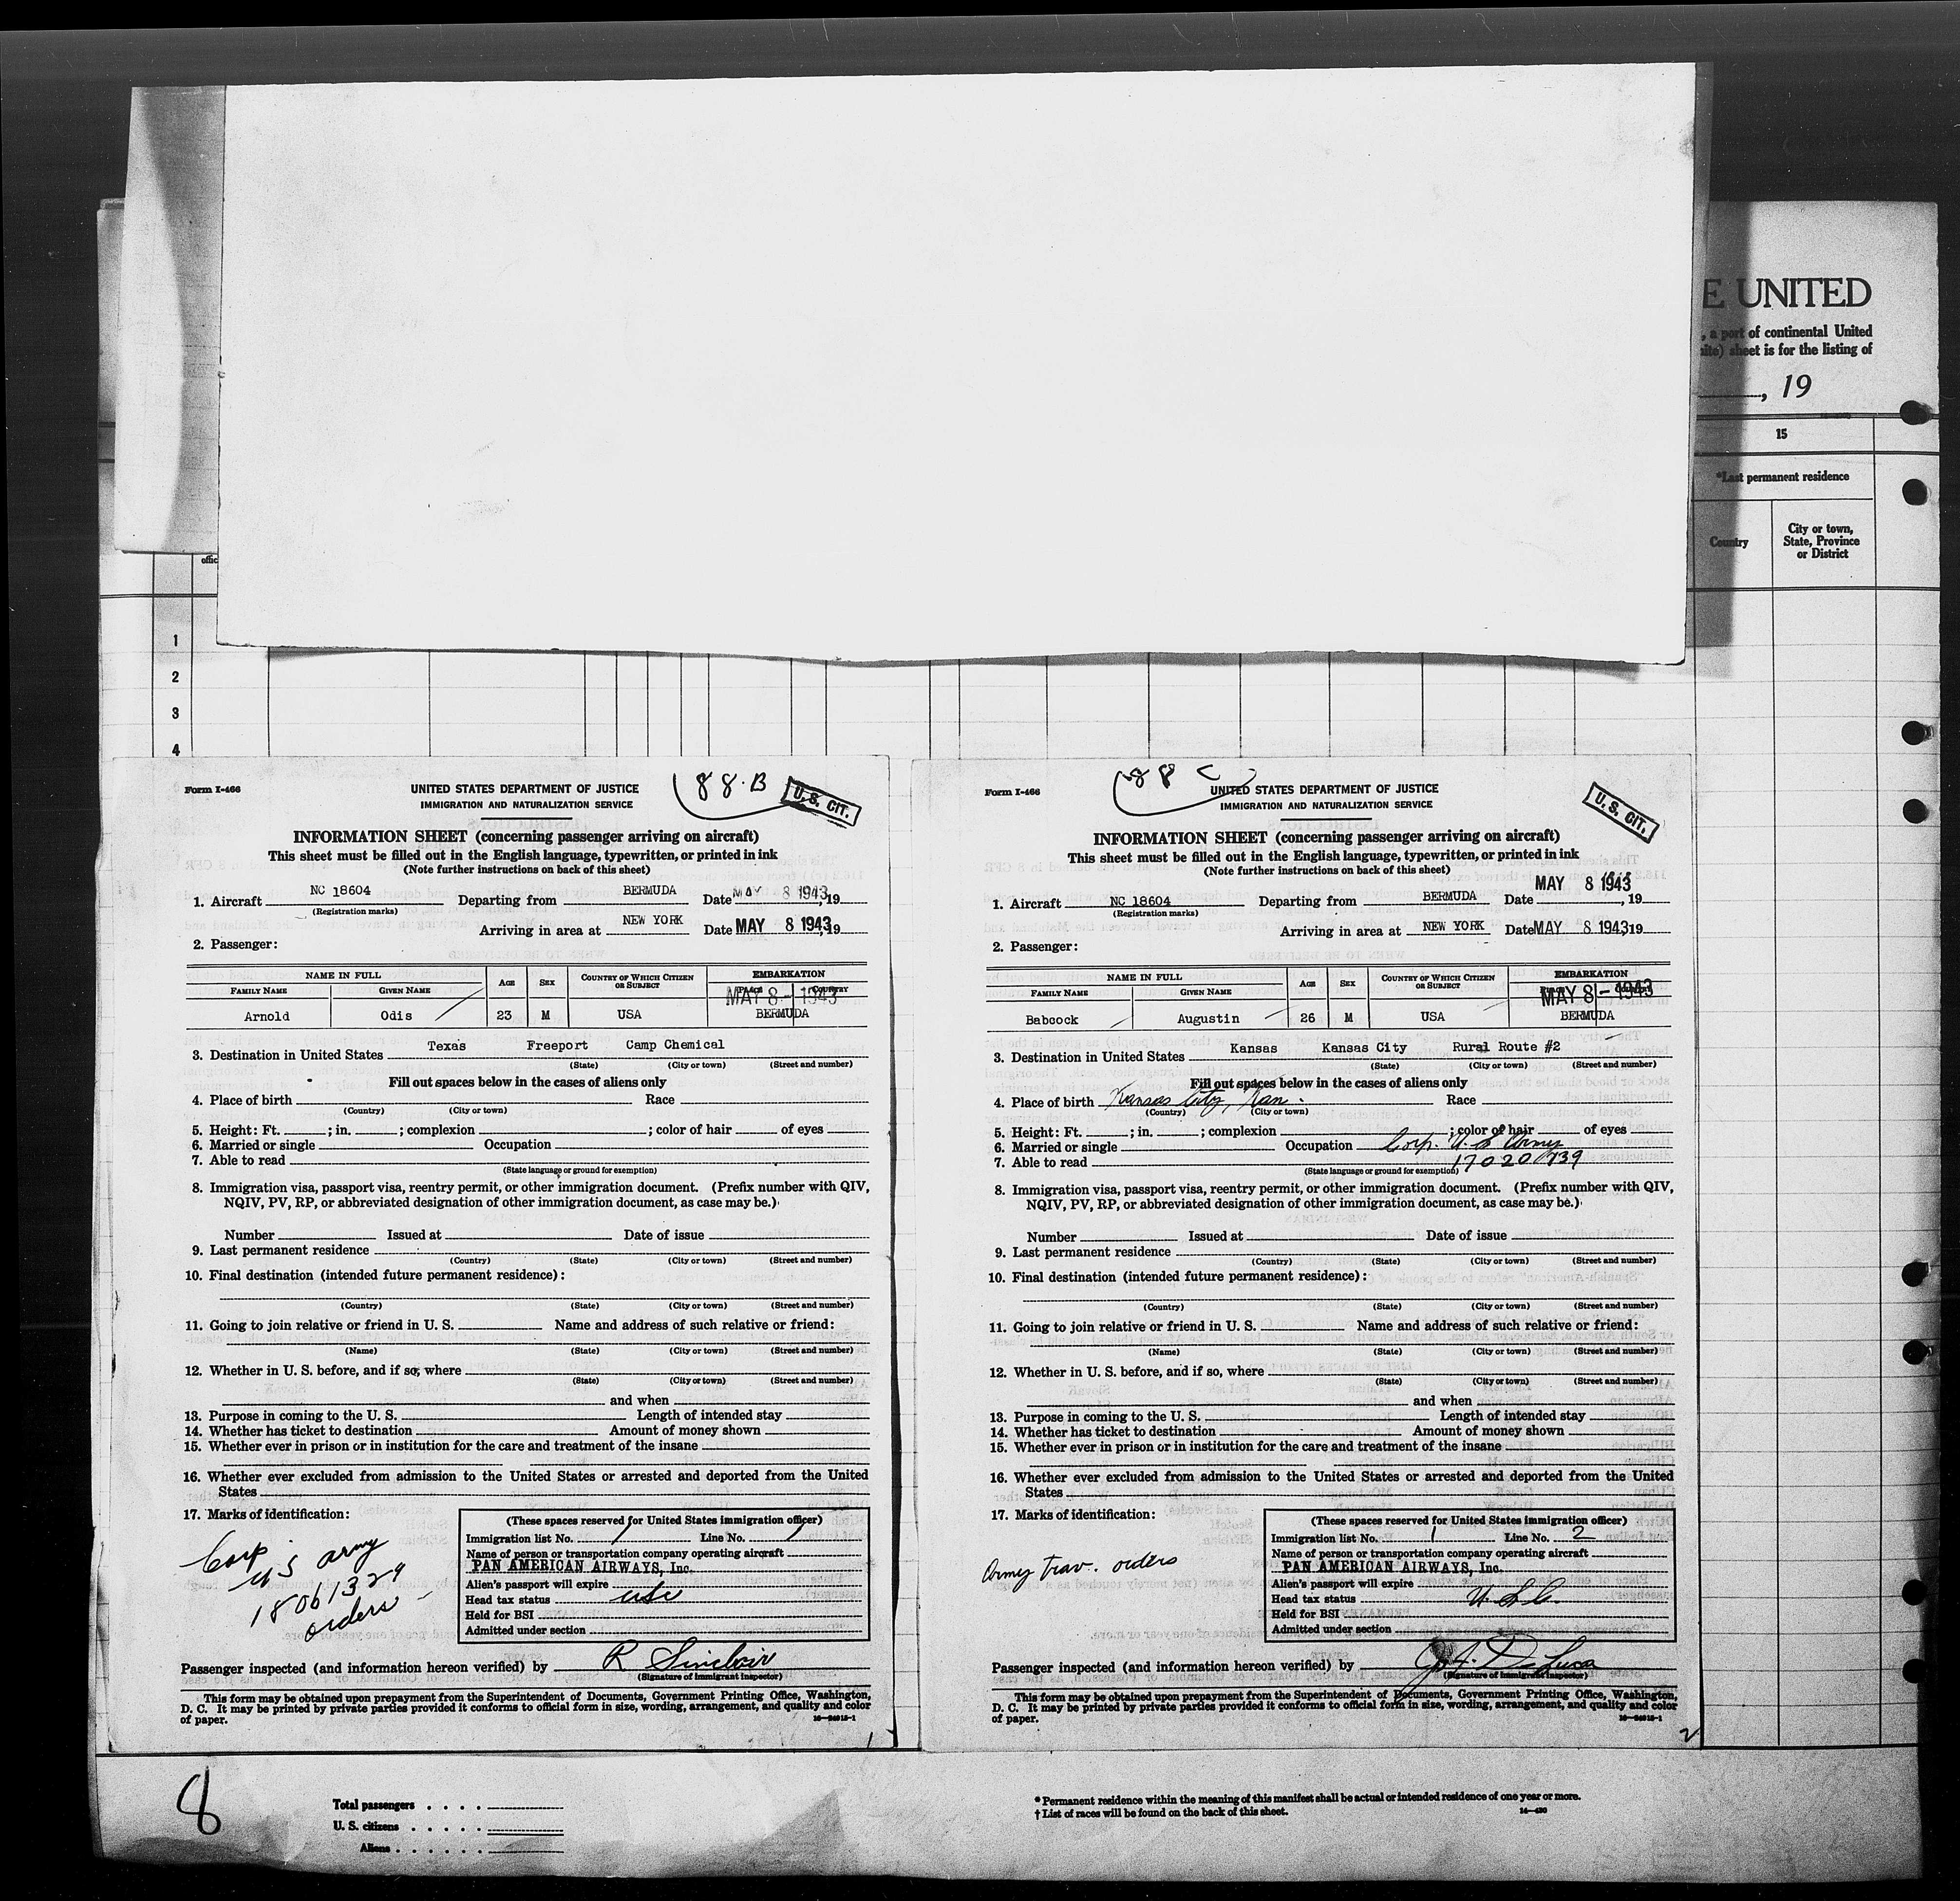 E UNITED
, a port of continental United
sheet is for the listing of
, 19
15
*Last permanent residence
Country
City or town,
State, Province
or District
offic
1
2
3
4
88-B
U.S. CIT.
Form I-466
UNITED STATES DEPARTMENT OF JUSTICE
IMMIGRATION AND NATURALIZATION SERVICE
INFORMATION SHEET (concerning passenger arriving on aircraft)
This sheet must be filled out in the English language, typewritten, or printed in ink
(Note further instructions on back of this sheet)
1. Aircraft NC 18604 Departing from BERMUDA Date MAY 8 1943, 19
(Registration marks)
Arriving in area at NEW YORK Date MAY 8 1943, 19
2. Passenger:
NAME IN FULL AGE SEX COUNTRY OF WHICH CITIZEN OR SUBJECT EMBARKATION
FAMILY NAME GIVEN NAME PLACE COUNTRY
MAY 8 - 1943
Arnold Odis 23 M USA BERMUDA
Texas Freeport Camp Chemical
3. Destination in United States
(State) (City or town) (Street and number)
Fill out spaces below in the cases of aliens only
4. Place of birth Race
(Country) (City or town)
5. Height: Ft. ; in. ; complexion ; color of hair of eyes
6. Married or single Occupation
7. Able to read
(State language or ground for exemption)
8. Immigration visa, passport visa, reentry permit, or other immigration document. (Prefix number with QIV,
NQIV, PV, RP, or abbreviated designation of other immigration document, as case may be.)
Number Issued at Date of issue
9. Last permanent residence
(Country) (State) (City or town) (Street and number)
10. Final destination (intended future permanent residence):
(Country) (State) (City or town) (Street and number)
11. Going to join relative or friend in U. S. Name and address of such relative or friend:
(Name) (State) (City or town) (Street and number)
12. Whether in U. S. before, and if so, where
(State) (City or town) (Street and number)
and when
13. Purpose in coming to the U. S. Length of intended stay
14. Whether has ticket to destination Amount of money shown
15. Whether ever in prison or in institution for the care and treatment of the insane
16. Whether ever excluded from admission to the United States or arrested and deported from the United
States
17. Marks of identification:
Corp
U S army
18061329
orders -
(These spaces reserved for United States immigration officer)
Immigration list No. 1 Line No. 1
Name of person or transportation company operating aircraft
PAN AMERICAN AIRWAYS, Inc.
Alien's passport will expire
Head tax status usc
Held for BSI
Admitted under section
Passenger inspected (and information hereon verified) by R Sinclair
(Signature of Immigrant Inspector)
This form may be obtained upon prepayment from the Superintendent of Documents, Government Printing Office, Washington,
D. C. It may be printed by private parties provided it conforms to official form in size, wording, arrangement, and quality and color
of paper.
1
88 C
U.S. CIT.
Form I-466
UNITED STATES DEPARTMENT OF JUSTICE
IMMIGRATION AND NATURALIZATION SERVICE
INFORMATION SHEET (concerning passenger arriving on aircraft)
This sheet must be filled out in the English language, typewritten, or printed in ink
(Note further instructions on back of this sheet)
1. Aircraft NC 18604 Departing from BERMUDA Date MAY 8 1943, 19
(Registration marks)
Arriving in area at NEW YORK Date MAY 8 1943, 19
2. Passenger:
NAME IN FULL AGE SEX COUNTRY OF WHICH CITIZEN OR SUBJECT EMBARKATION
FAMILY NAME GIVEN NAME
MAY 8 - 1943
Babcock Augustin 26 M USA BERMUDA
Kansas Kansas City Rural Route #2
3. Destination in United States
(State) (City or town) (Street and number)
Fill out spaces below in the cases of aliens only
4. Place of birth Kansas City, Kan. Race
(Country) (City or town)
5. Height: Ft. ; in. ; complexion ; color of hair of eyes
6. Married or single Occupation Corp. U. S Army
7. Able to read 17020739
(State language or ground for exemption)
8. Immigration visa, passport visa, reentry permit, or other immigration document. (Prefix number with QIV,
NQIV, PV, RP, or abbreviated designation of other immigration document, as case may be.)
Number Issued at Date of issue
9. Last permanent residence
(Country) (State) (City or town) (Street and number)
10. Final destination (intended future permanent residence):
(Country) (State) (City or town) (Street and number)
11. Going to join relative or friend in U. S. Name and address of such relative or friend:
(Name) (State) (City or town) (Street and number)
12. Whether in U. S. before, and if so, where
(State) (City or town) (Street and number)
and when
13. Purpose in coming to the U. S. Length of intended stay
14. Whether has ticket to destination Amount of money shown
15. Whether ever in prison or in institution for the care and treatment of the insane
16. Whether ever excluded from admission to the United States or arrested and deported from the United
States
17. Marks of identification:
Army trav. orders
(These spaces reserved for United States immigration officer)
Immigration list No. 1 Line No. 2
Name of person or transportation company operating aircraft
PAN AMERICAN AIRWAYS, Inc.
Alien's passport will expire
Head tax status U. S. C.
Held for BSI
Admitted under section
Passenger inspected (and information hereon verified) by De Luca
(Signature of Immigrant Inspector)
This form may be obtained upon prepayment from the Superintendent of Documents, Government Printing Office, Washington,
D. C. It may be printed by private parties provided it conforms to official form in size, wording, arrangement, and quality and color
of paper.
2
8
Total passengers
U. S. citizens
Aliens
* Permanent residence within the meaning of this manifest shall be actual or intended residence of one year or more.
† List of races will be found on the back of this sheet.